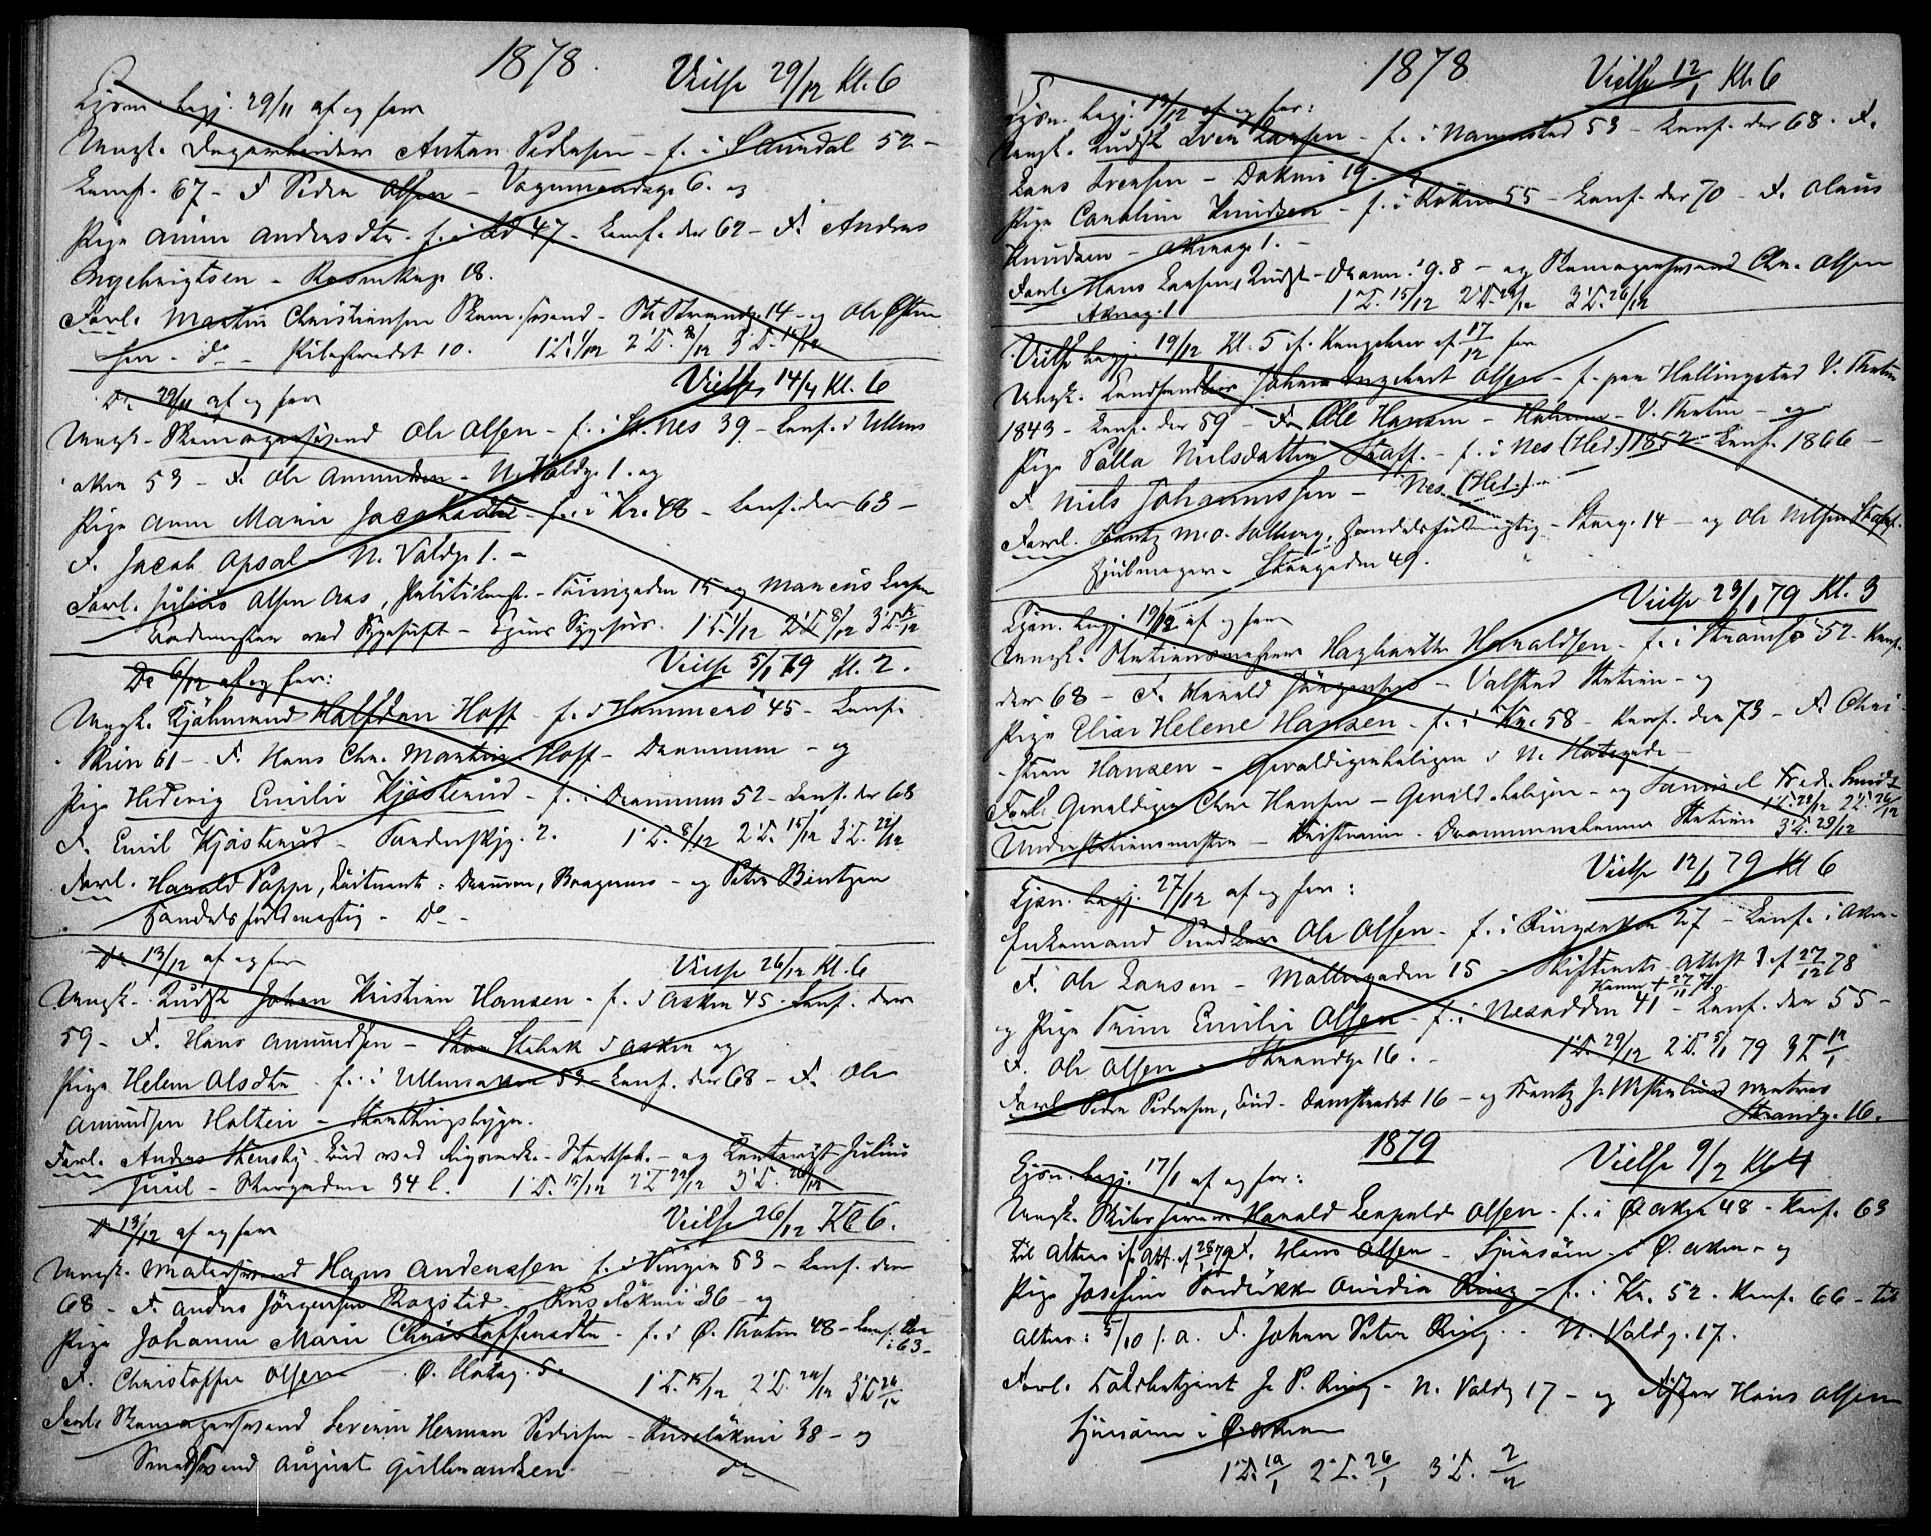 1878.
Vielse 29/12 Kl. 6
Lysn. begj. 29/11 af og for
Ungk. Dagarbeider Anton Pedersen - f. i 52 -
Conf. 67 - F. Peder Olsen - Vognmandsg. 6. og
Pige Anne Andersdtr. f. i 47 - Conf. der 62 - F. Andres
Ingebrigtsen - Rosenkrg. 18.
Forl. Martin Christiansen Skom.svend - St. Strandg. 14 - og Ole Østen
sen - do - Pilestredet 10. 1 L. 1/12 2 L. 8/12 3 L. 15/12
Vielse 14/4 Kl. 6
Do 29/11 af og for
Ungk. Skomagersvend Ole Olsen - f. i Nes 39 - Conf. i Ullens
aker 53 - F. Ole Amundsen - N. Voldg. 1. og
Pige Anne Marie Jacobsdtr. - f. i Kr. 48 - Conf. der 63 -
F. Jacob Opsal - N. Voldg. 1. -
Forl. Julius Olsen Aas, Politikonst. - 15 og Marcus Larsen
1 L. 1/12 2 L. 8/12 3 L. 15/12
Vielse 5/1 79 Kl. 2.
Do 6/12 af og for:
Ungk. Kjøbmand Halfdan Hoff - f. i Hammerö 45 - Conf. i
Skien 61 - F. Hans Chr. Martin Hoff - Drammen - og
Pige Hedevig Emilie Kjøsterud - f. i Drammen 52 - Conf. der 68
F. Emil Kjøsterud - 2. 1 L. 8/12 2 L. 15/12 3 L. 22/12
Forl. Harald Poppe, Drammen, Bragernes - og Peter Bentzen
Handelsfuldmægtig - Do -
Vielse 26/12 Kl. 6
Do 13/12 af og for
Ungk. Kudsk Johan Kristian Hansen - f. i Asker 45 - Conf. der
59 - F. Hans Amundsen - Stabæk i Asker og
Pige Helene Olsdtr. f. i Ullensaker 53 - Conf. der 68 - F. Ole
Amundsen Holter - Storthingsbygn.
Forl. Andres Stensby Bud ved - og Kontorist Julius
Juul - Storgaden 34 b. 1 L. 15/12 2 L. 22/12 3 L. 26/12
Vielse 26/12 Kl 6.
Do 13/12 af og for
Ungk. Malersvend Hans Anderssen f. i Vinger 53 - Conf. der
68 - F. Anders Jørgensen Rogstad - Ruseløkvei 36 - og
Pige Johanne Marie Christoffersdtr. - f. i Ø. Thoten 48 - Conf. der
i 63 -
F. Christoffer Olsen - Ø. 5. 1 L. 15/12 2 L. 22/12 3 L. 26/12
Forl. Skomagersvend Severin Herman Pedersen - Ruseløkvei 38 - og
Smedsvend August Gulbrandsen - do
1878
Vielse 12/1 Kl. 6
Lysn. begj. 13/12 af og for:
Ungk. Kudsk Sven Larsen - f. i Nannestad 53 - Conf. der 68. F.
Lars Svensen - Dokvei 19.
Pige Caroline Knudsen - f. i Røken 55 - Conf. der 70 - F. Olaus
Knudsen - Akersg. 1. -
Forl. Hans Larsen, Kudsk - 9. 8 - og Skomagersvend Chr. Olsen
Akersg. 1 1 L. 15/12 2 L. 22/12 3 L. 26/12
Vielse begj. 19/12 Kl. 5 if. Kongebrev af 17/12 for
Ungk. Landhandler Johan Engebret Olsen - f. paa Hallingstad V. Thoten
1843 - Conf. der 59 - F. Ole Hansen - V. Thoten - og
Pige Pella Nielsdatter Staff. - f. i Nes (Hed.) 1852 - Conf. 1866 -
F. Niels Johannessen - Nes (Hed.) -
Forl. Frantz M. O. Solberg, Handelsfuldmægtig - Storg. 14 - og Ole Nilsen Staff.
Hjulmager - Storgaden 49.
Vielse 23/1 79 Kl. 3
Lysn. begj. 19/12 af og for
Ungk. Stationsmester Hagbarth Haraldsen - f. i Strømsø 52 - Konf.
der 68 - F. Harald Jørgensen - Valstad Station - og
Pige Elise Helene Hansen - f. i Kr. 58 - Konf. der 73 - F. Chri-
stian Hansen - Gevaldigerboligen i N. Slotsgade -
Forl. Gevaldiger Chr. Hansen - Gevald.boligen - og Samuel Fredr. Smidt
Understationsmester - Kristiania Drammensbanen Station 1 L. 22/12 2 L. 26/12
3 L. 29/12
Vielse 12/1 79 Kl 6
Lysn. begj. 27/12 af og for:
Enkemand Snedker Ole Olsen - f. i Ringsaker 27 - Conf. i Aker -
F. Ole Larsen - Møllergaden 15 - Skifterets Attest d. af 27/12 78
Konen † 27/11 77.
og Pige Trine Emilie Olsen - f. i Nesodden 41 - Conf. der 55 -
F. Ole Olsen - Strandg. 16. - 1 L. 29/12 2 L. 5/1 79 3 L 12/1
Forl. Peder Pedersen, Bud - Damstredet 16 - og Frantz J. Westerlund
Strandg. 16.
1879
Vielse 9/2 Kl. 4
Lysn. begj. 17/1 af og for:
Ungk. Harald Leopold Olsen - f. i Ø. Aker 48 - Konf. 63
til Alters if. Att. af 28/1 79 F. Hans Olsen - i Ø. Aker - og
Pige Josefine Fredrikke Ovidia Ring - f. i Kr. 52. Konf. 66 - til
Alters: 5/10 f. a. F. Johan Peter Ring. - N. Voldg. 17.
Forl. Toldbetjent J. P. Ring - N. Voldg 17 - og Hans Olsen
i Ø. Aker
1 L. 19/1 2 L. 26/1 3 L. 2/2